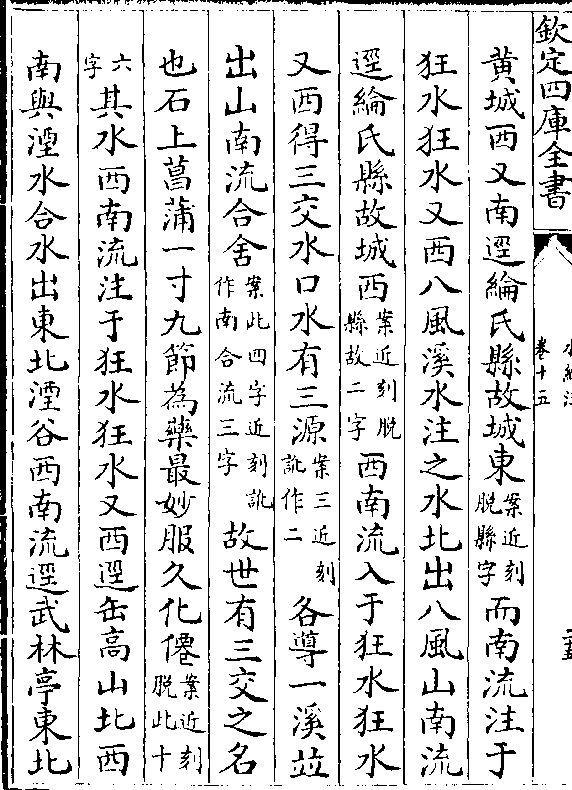 欽定四庫全書
水經注
卷十五
黃城西又南逕綸氏縣故城東案近刻脫縣字而南流注于
狂水狂水又西八風溪水注之水北出八風山南流
逕綸氏縣故城西案近刻脫縣故二字西南流入于狂水狂水
又西得三交水口水有三源案三近刻訛作二各導一溪竝
出山南流合舍案此四字近刻訛作南合流三字故世有三交之名
也石上菖蒲一寸九節為藥最妙服久化僊案近刻脫此十
六字其水西南流注于狂水狂水又西逕缶高山北西
南與湮水合水出東北湮谷西南流逕武林亭東北